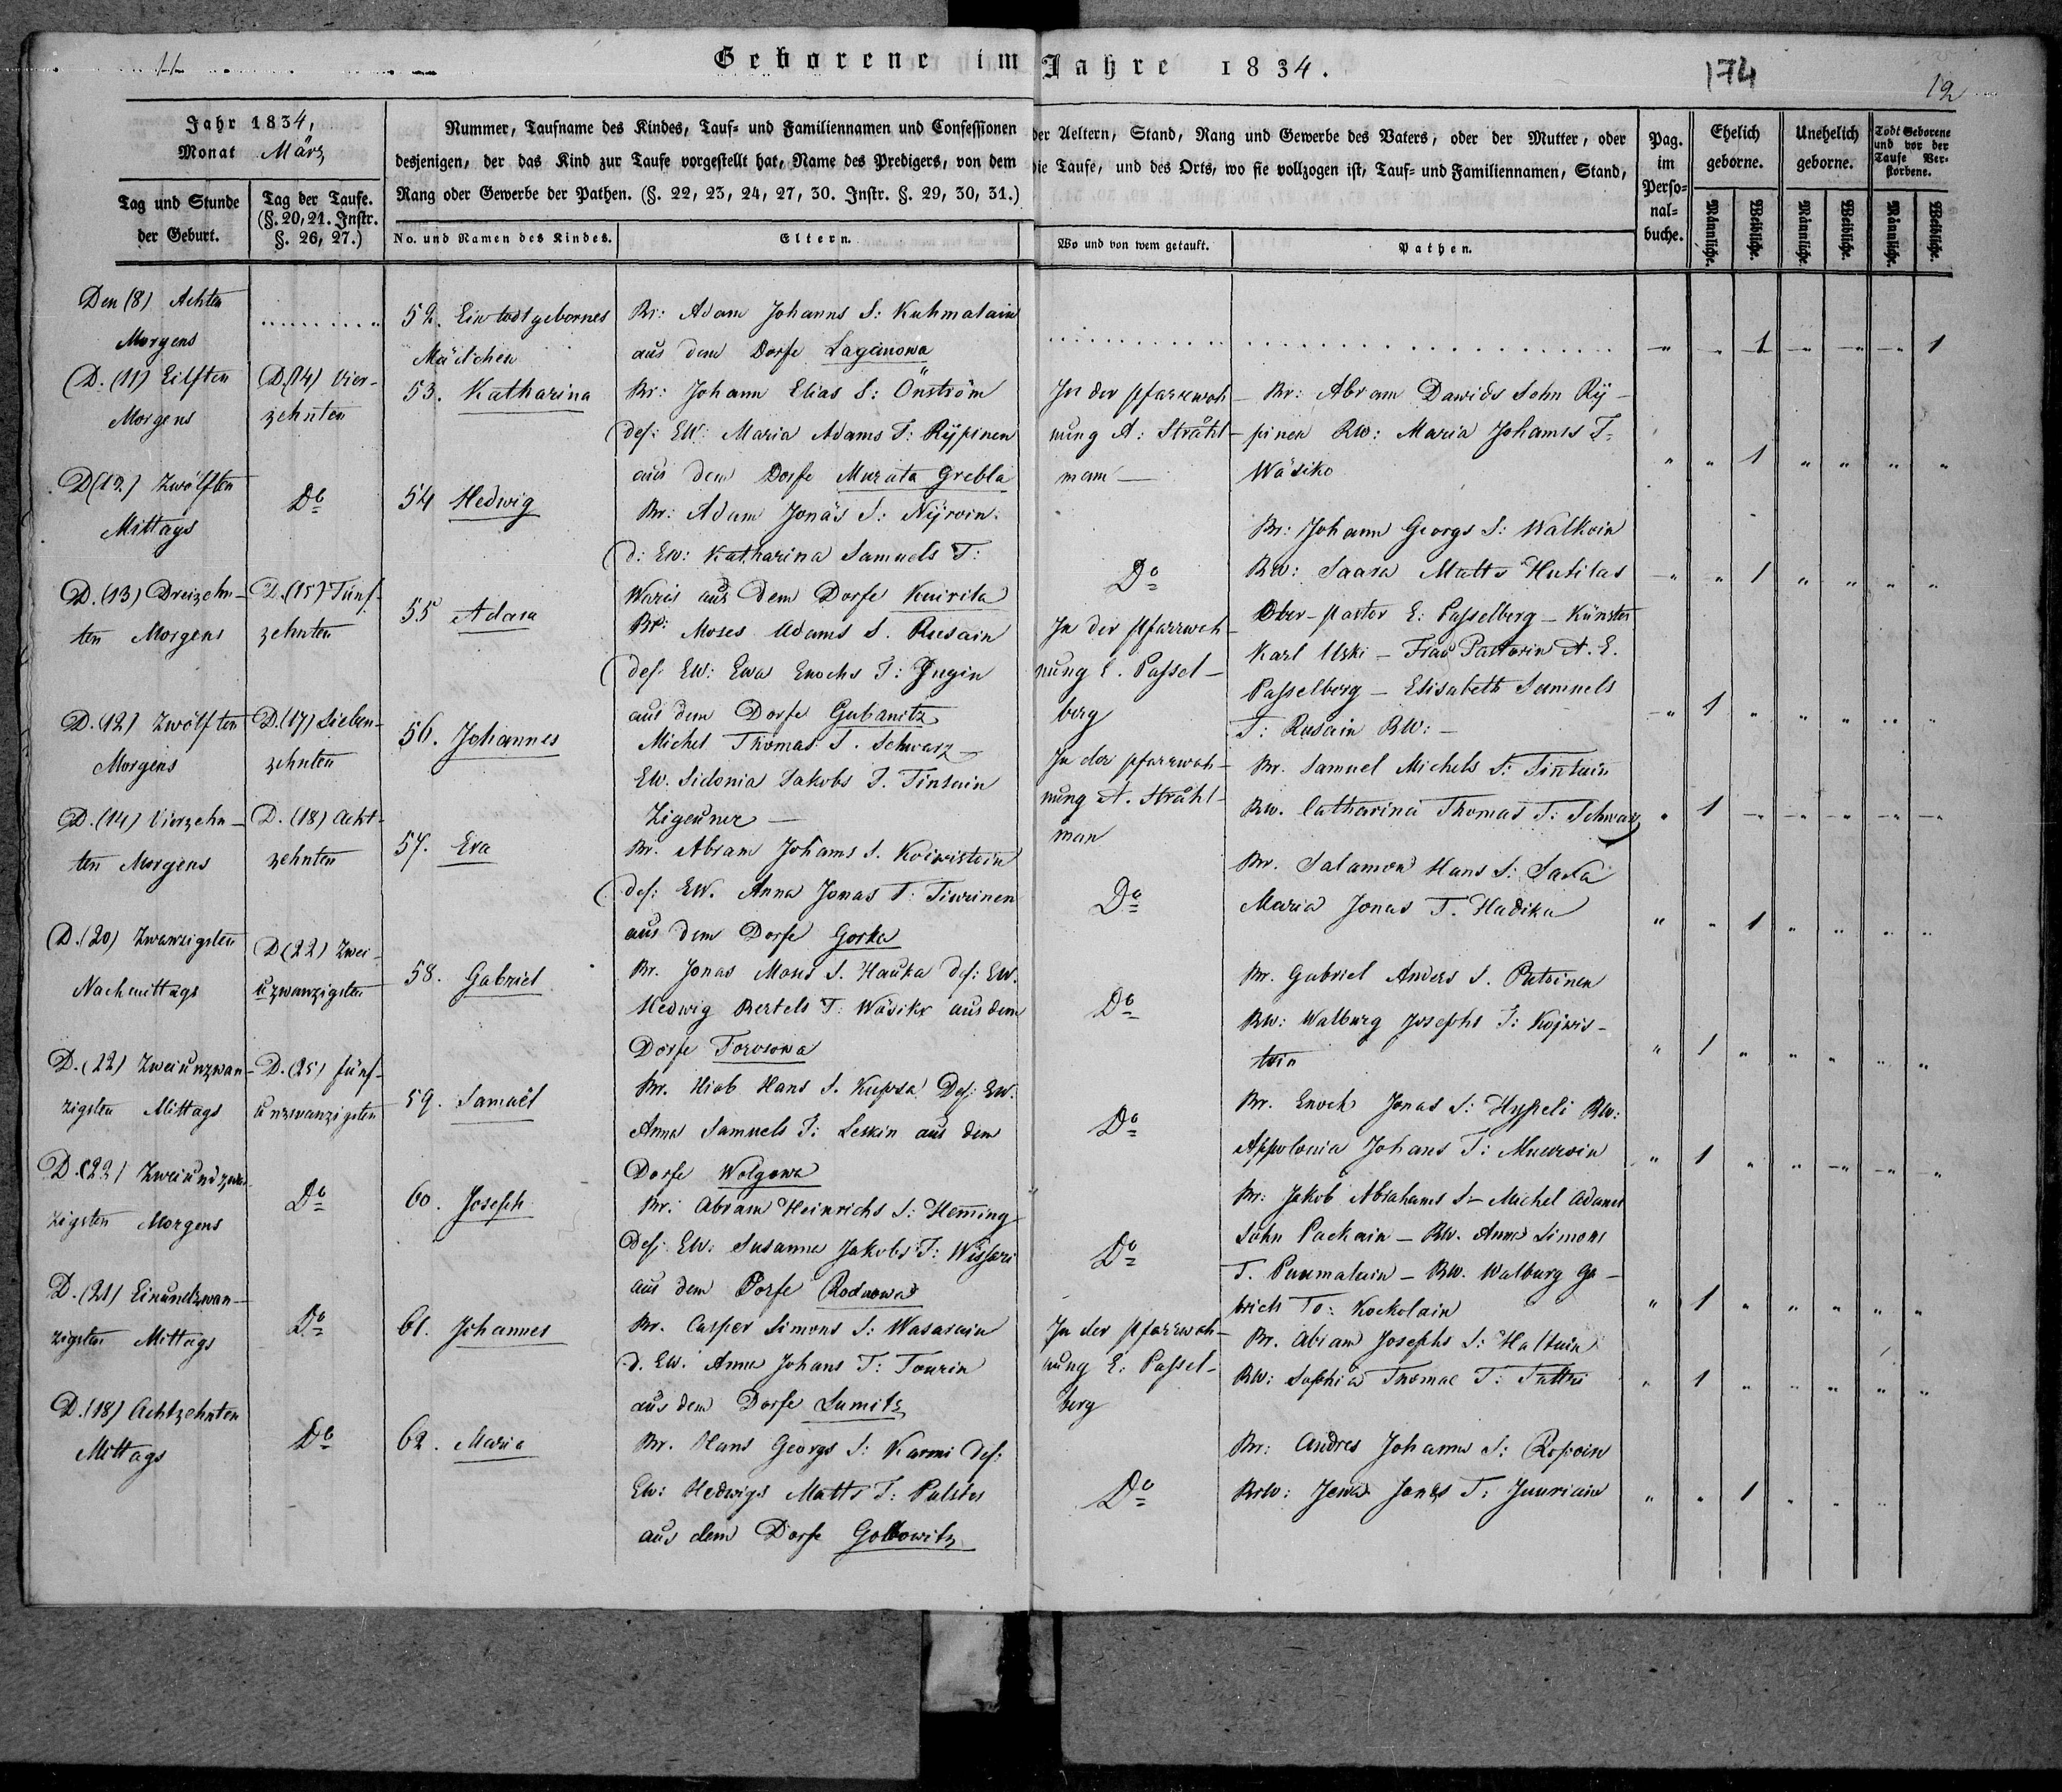 11
Geborene im Jahre 1834.
174
12
Jahr 1834,
Monat März
Tag und Stunde
der Geburt.
Tag der Taufe.
(§. 20, 21. Instr.
§. 26, 27.)
Nummer, Taufname des Kindes, Tauf= und Familiennamen und Confessionen der Aeltern, Stand, Rang und Gewerbe des Vaters, oder der Mutter, oder
desjenigen, der das Kind zur Taufe vorgestellt hat, Name des Predigers, von dem die Taufe, und des Orts, wo sie vollzogen ist, Tauf= und Familiennamen, Stand,
Rang oder Gewerbe der Pathen. (§. 22, 23, 24, 27, 30. Instr. §. 29, 30, 31.)
No. und Namen des Kindes.
Eltern.
Wo und von wem getauft.
Pathen.
Pag.
im
Perso=
nal=
buche.
Ehelich
geborne.
Unehelich
geborne.
Todt Geborene
und vor der
Taufe Ver=
storbene.
Männliche.
Weibliche.
Männliche.
Weibliche.
Männliche.
Weibliche.
Den (8) Achten
Morgens
52. Ein todtgebornes
Mädchen
Br: Adam Johanns S: Kuhmalain
aus dem Dorfe Laganowa
1
1
(D. (11) Eilften
Morgens
(D. (14) Vier-
zehnten
53. Katharina
Br: Johann Elias S: Önström
des: EW: Maria Adams T: Rÿpinen
aus dem Dorfe Murata Grebla
In der Pfarrwoh-
nung A: Stråhl-
man —
Br: Abram Dawids Sohn Rÿ-
pinen BW: Maria Johanns T:
Wäsiko
1
D (12) Zwölften
Mittags
Do
54 Hedwig
Br: Adam Jonäs S: Nÿroin
d: EW: Katharina Samuels T:
Waris aus dem Dorfe Kuirita
Do
Br: Johann Georgs S: Walkoin
BW: Saara Matts Hutilas
1
D. (13) Dreizehn-
ten Morgens
D. (15) Fünf-
zehnten
55 Adam
Br: Moses Adams S. Rusain
des: EW: Ewa Enochs T: Jugin
aus dem Dorfe Gubanitz
In der Pfarrwoh-
nung E. Passel-
berg
Ober-Pastor E: Passelberg — Künster
Karl Uski — Frau Pastorin A. E.
Passelberg — Elisabeth Samuels
T: Rusain BW: —
1
D. (12) Zwölften
Morgens
D. (17) Sieben-
zehnten
56. Johannes
Michel Thomas S. Schwarz —
EW. Sidonia Jakobs T. Tintuin
Zigeuner —
In der Pfarrwoh-
nung A. Stråhl-
man
Br. Samuel Michels S: Tintuin
BW. Catharina Thomas T: Schwarz
1
D. (14) Vierzehn-
ten Morgens
D. (18) Acht-
zehnten
57. Eva
Br. Abram Johanns S. Koiwistoin
des: EW. Anna Jonas T: Tiurinen
aus dem Dorfe Gorka
Do
Br. Salamon Hans S:
Maria Jonas T. Hudika
1
(D. (20) Zwanzigsten
Nachmittags
D (22) Zwei-
uzwanzigsten
58. Gabriel
Br. Jonas Moses S. Hauka des: EW.
Hedwig Bertels T: Wäsiko aus dem
Dorfe Torosowa
Do
Br. Gabriel Anders S. Putoinen
BW: Walburg Josephs T: Kojwis-
toin
1
D. (22) Zweiunzwan-
zigsten Mittags
D. (25) fünf-
unzwanzigsten
59. Samuel
Br. Hiob Hans S. Kupsa Des: EW.
Anna Samuels T: Leskin aus dem
Dorfe Wolgowa
Do
Br. Enoch Jonas S: Hyppeli BW:
Appolonia Johans T: Muuroin
1
D. (22) Zweiundzwan-
zigsten Morgens
Do
60. Joseph
Br: Abram Heinrichs S: Heming
Des: EW: Susanna Jakobs T: Wissari
aus dem Dorfe Rodnowa
Do
Br: Jakob Abrahams S — Michel Adams
Sohn Packain — BW. Anna Simons
T. Puumalain — BW. Walburg Ga-
briels To: Kockolain
1
D. (21) Einundzwan-
zigsten Mittags
Do
61. Johannes
Br. Casper Simons S: Wasarain
d. EW. Anna Johans T: Tourin
aus dem Dorfe Lumitz
In der Pfarrwoh-
nung E: Passel-
berg
Br. Abram Josephs S: Haltuin
BW: Sophia Thomae T: Tattri
1
D. (18) Achtzehnten
Mittags
Do
62. Maria
Br. Hans Georgs S: Karmi des:
EW: Hedwigs Matts T: Pulstes
aus dem Dorfe Golbowitz
Do
Br: Andres Johanns S: Ropoin
BrW: Jewa Jonas T: Juuriain
1